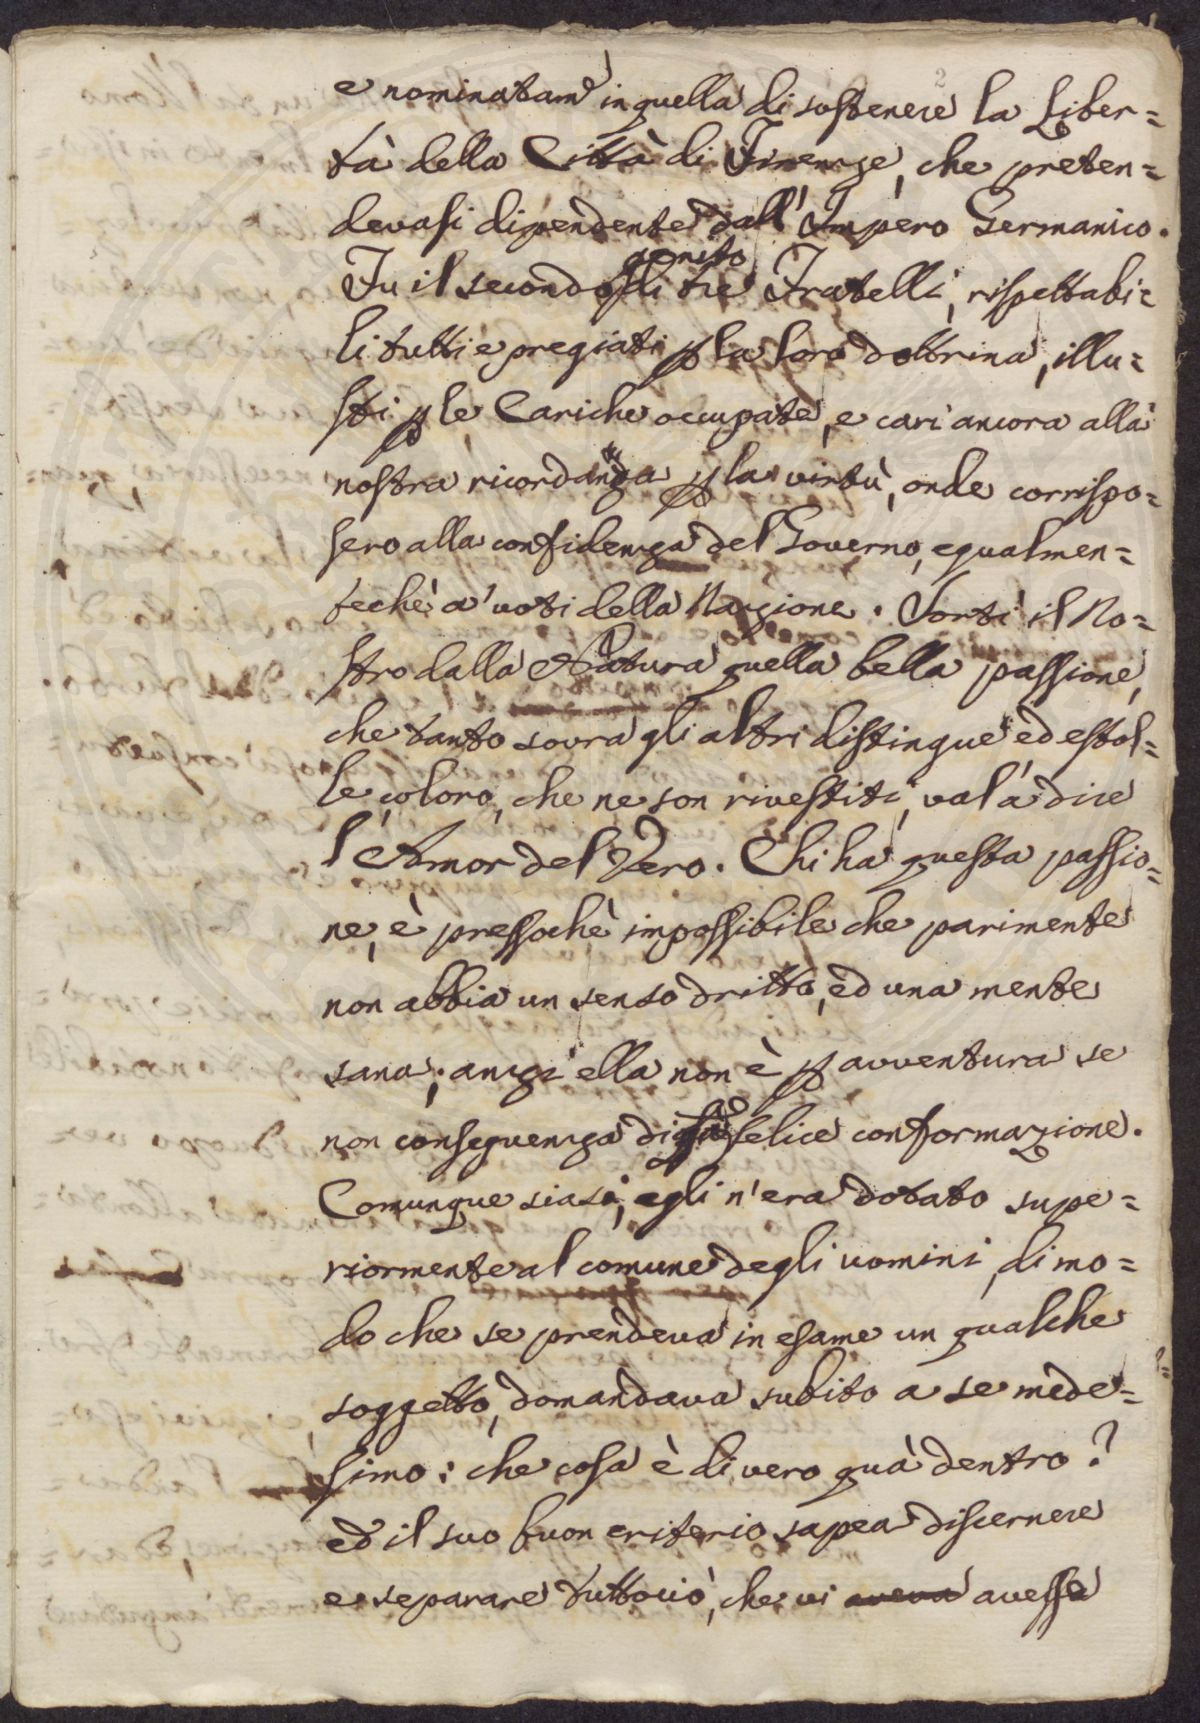 e nominatam.e in quella di sostenere la Liber=
tà della Città di Firenze, che preten=
devasi dipendente dall' Impero Germanico.
genito
Fu il secondo di tre Fratelli, rispettabi=
li tutti e pregiati p la loro dottrina, illu=
stri p le Cariche occupate, e cari ancora alla
nostra ricordanza p la virtù, onde corrispo=
sero alla confidenza del Governo, egualmen=
techè a' voti della Nazione. Sortì il No=
stro dalla Natura quella bella passione,
che tanto sovra gli altri distingue ed estol=
le coloro, che ne son rivestiti, val'a dire
l'Amor del Vero. Chi ha questa passio=
ne, è pressochè impossibile che parimente
non abbia un senso dritto, ed una mente
sana; anzi ella non è p avventura se
non conseguenza di felice conformazione.
Comunque siasi, egli n'era dotato supe=
riormente al comune degli uomini, di mo=
do che se prendeva in esame un qualche
soggetto, domandava subito a se mede=
simo: che cosa è di vero quà dentro?
ed il suo buon criterio sapea discernere
e separare tuttociò, che vi aveva avesse